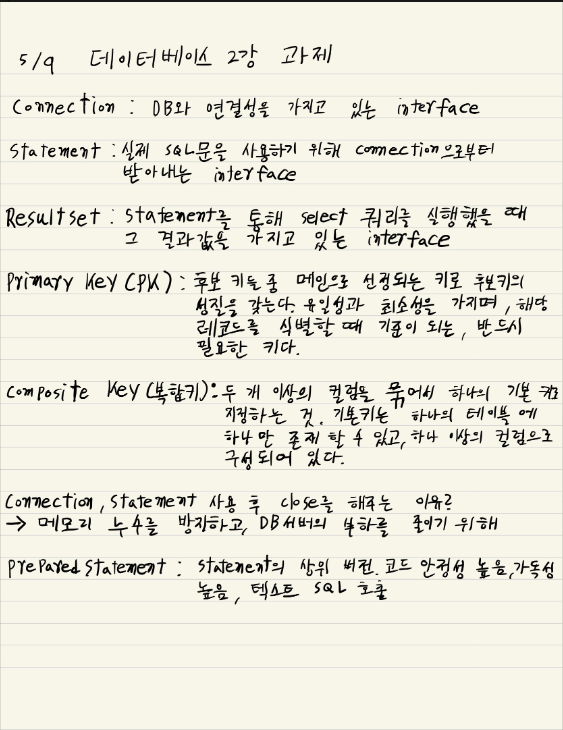 5/9 데이터베이스 2강 과제
Connection : DB와 연결성을 가지고 있는 interface
Statement : 실제 SQL문을 사용하기 위해 connection으로부터
받아내는 interface
Resultset : Statement를 통해 select 쿼리를 실행했을 때
그 결과값을 가지고 있는 interface
Primary Key (PK) : 후보 키들 중 메인으로 선정되는 키로 후보키의
성질을 갖는다. 유일성과 최소성을 가지며, 해당
레코드를 식별할 때 기준이 되는, 반드시
필요한 키다.
Composite Key (복합키) : 두 개 이상의 컬럼을 묶어서 하나의 기본 키로
지정하는 것. 기본키는 하나의 테이블에
하나만 존재 할 수 있고, 하나 이상의 컬럼으로
구성되어 있다.
Connection, Statement 사용 후 close를 해주는 이유?
→ 메모리 누수를 방지하고, DB서버의 부하를 줄이기 위해
Prepared Statement : Statement의 상위 버전. 코드 안정성 높음, 가독성
높음, 텍스트 SQL 호출